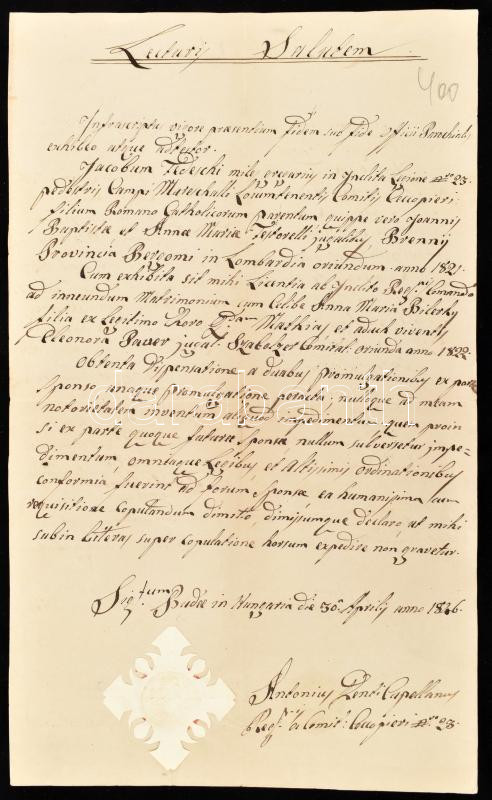 Lectoris Salutem
400
Infrascriptus vigore præsentium fidem sub fide officii Parochialis
exhibeo atque adtestor.
Jacobum Tedeschi mile gregarius in Inclita Legione Nro 23.
pedestris Campi Mareschalli Locumtenentis Comitis Ceccopieri
filium Romano Catholicorum parentum quippe vero Joannis
Baptistæ et Annæ Mariæ Testorelli jugalibus Brennij
Provincia Bergomi in Lombardia oriundum anno 1821.
Cum exhibita sit mihi Licentia ab Inclito Regj. Comando
ad ineundum Matrimonium cum Celibe Anna Maria Bilersky
filia ex Legitimo thoro Mathias et aduk vivent
Eleonora Paver jugal: Szabolzer Comitat: oriunda anno 1822.
Obtenta dispensatione a duabus promulgationibus ex parte
sponso unaque promulgatione peracta, nulloque ad meam
notorietatem inventum aliquod impedimentum, quem proin
si ex parte quoque futuræ sponsæ nullum subversetur impe-
dimentum, omniaque Legibus et Altissimis ordinationibus
conformia fuerint ad forum sponsæ ea humanissima cum
requisitione copulandum dimitto, dimissumque declaro, ut mihi
subin Literas super copulatione horsum expedire non gravetur.
Sigtum Budæ in Hungaria die 30. Aprilis anno 1846.
Antonius Capellanus
Regj. Comit: Ceccopieri Nro 23.
darabanth